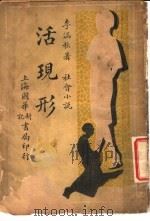 李涵秋著 社會小說
活現形
上海國華新記書局印行